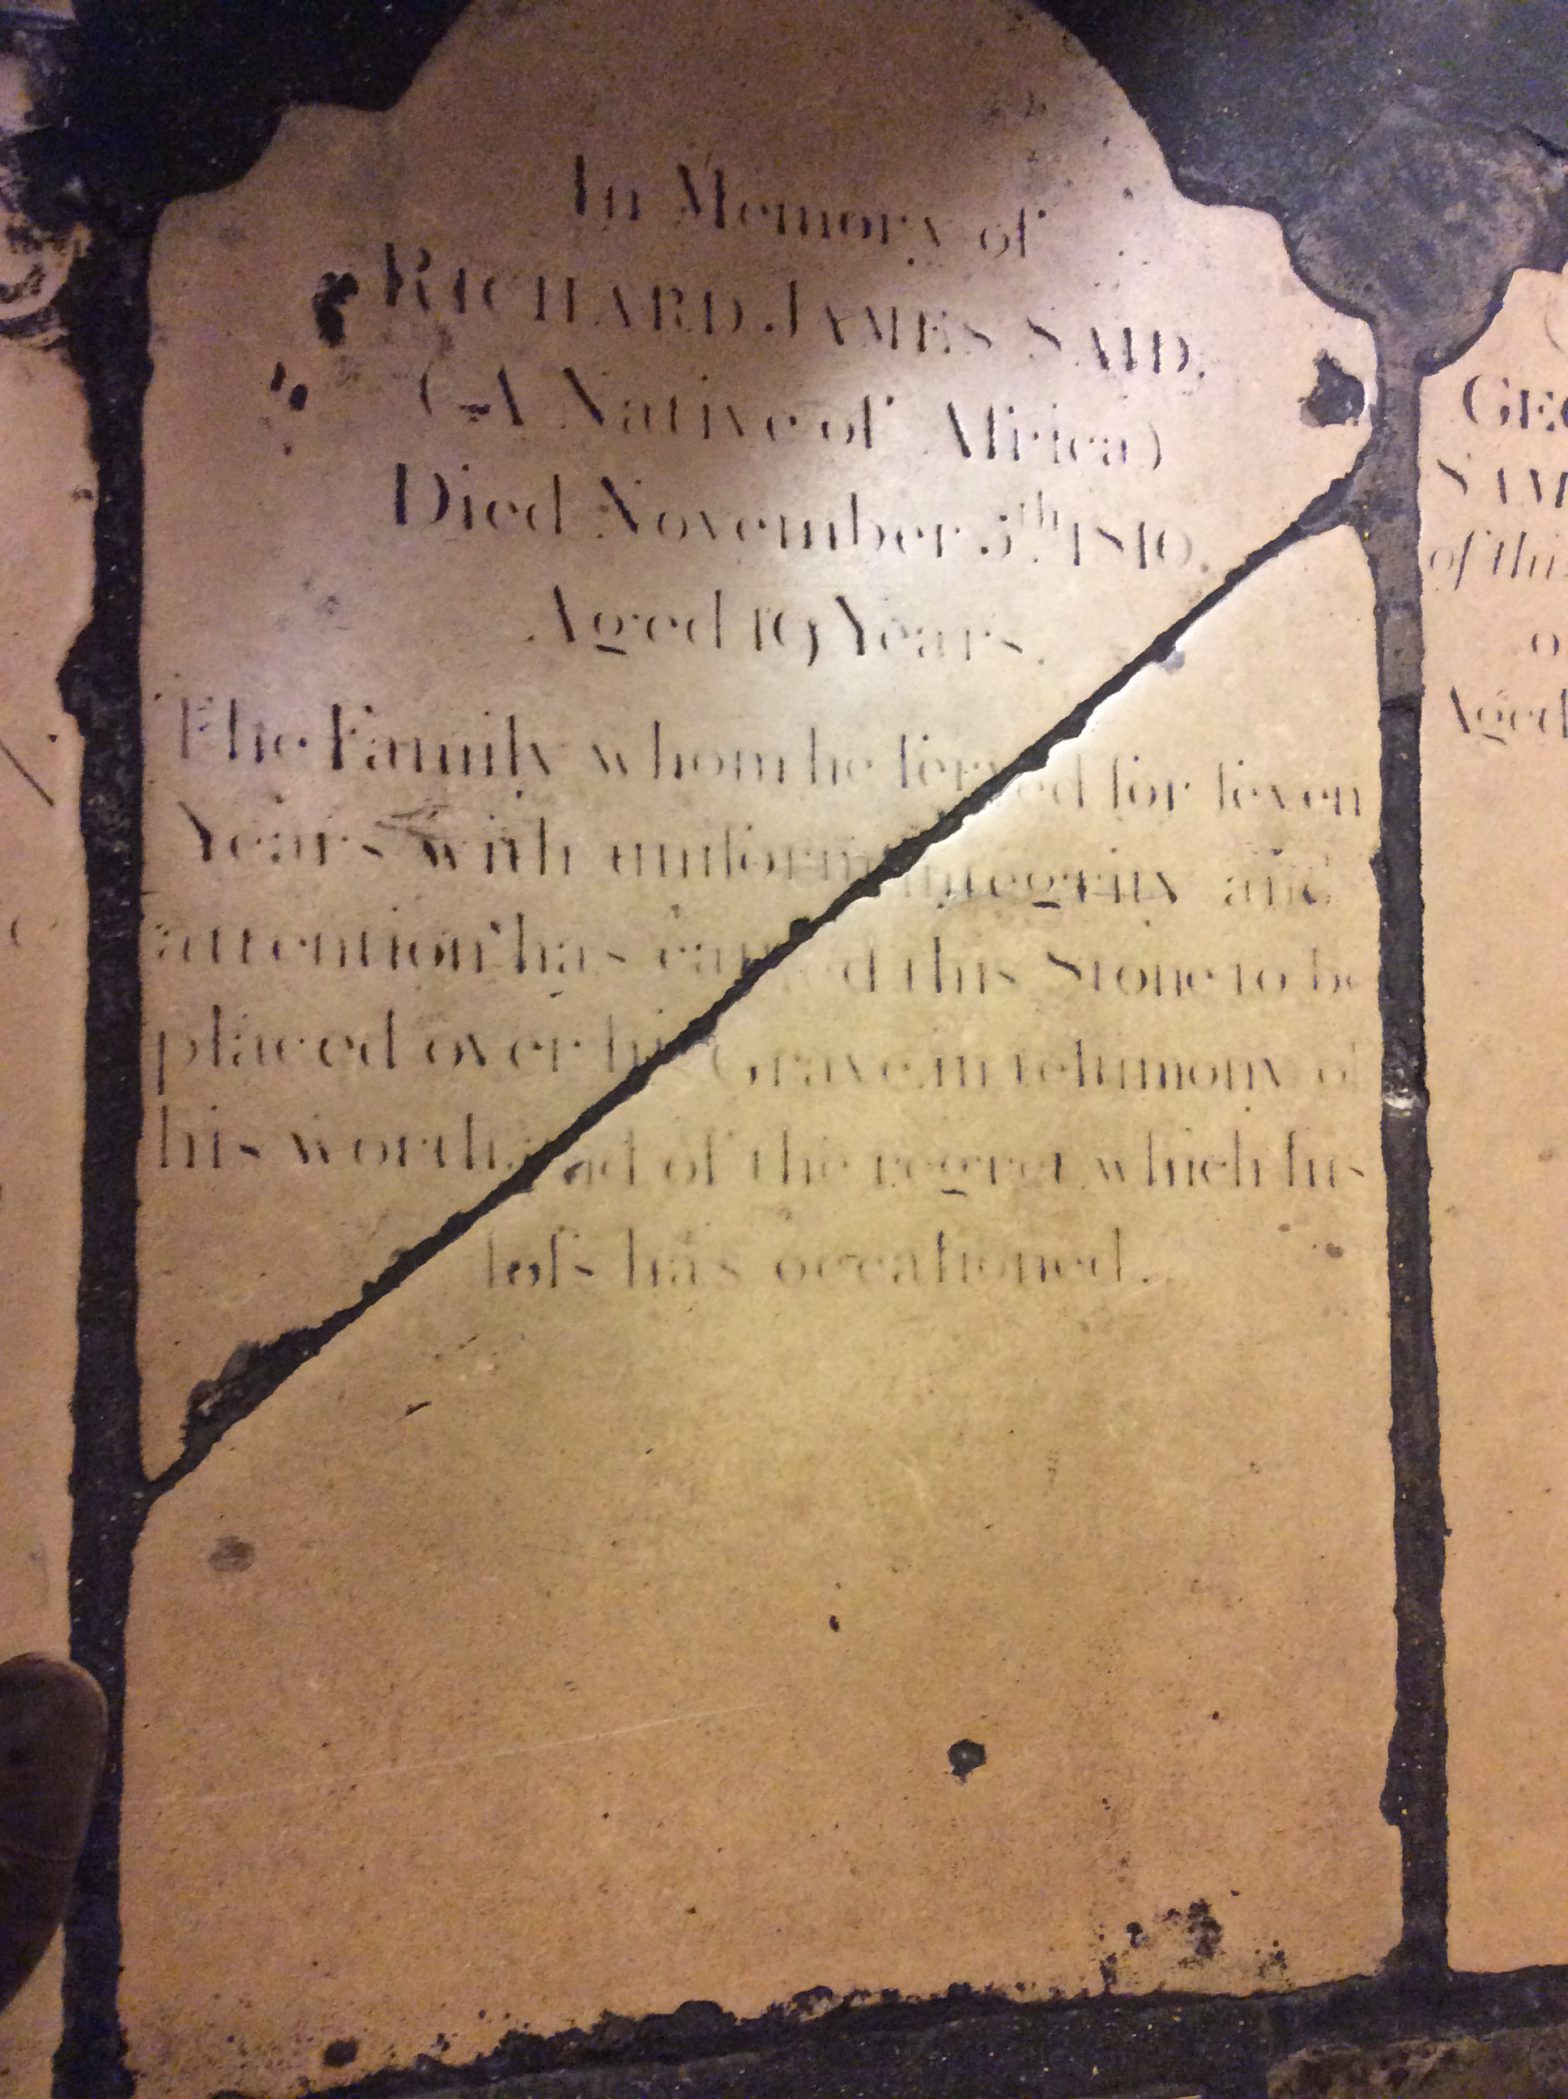 In Memory of
RICHARD JAMES SAID,
(A Native of Africa)
Died November 5th 1810.
Aged 19 Years.
The Family whom he ſerved for ſeven
Years with uniform integrity and
attention has cauſed this Stone to be
placed over his Grave, in teſtimony of
his worth, and of the regret which his
loſs has occaſioned.
GEO
SAM
of thi
o
Aged